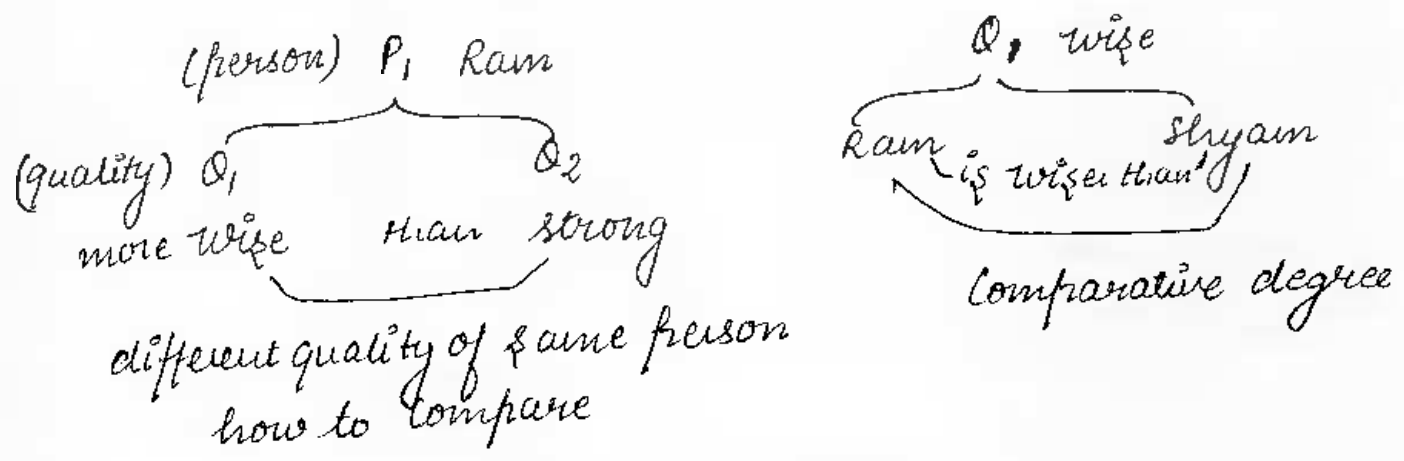 (person) P1 Ram
(quality) Q1 Q2
more wise than strong
different quality of same person
how to compare
Q, wise
Ram Shyam
is wiser than
Comparative degree